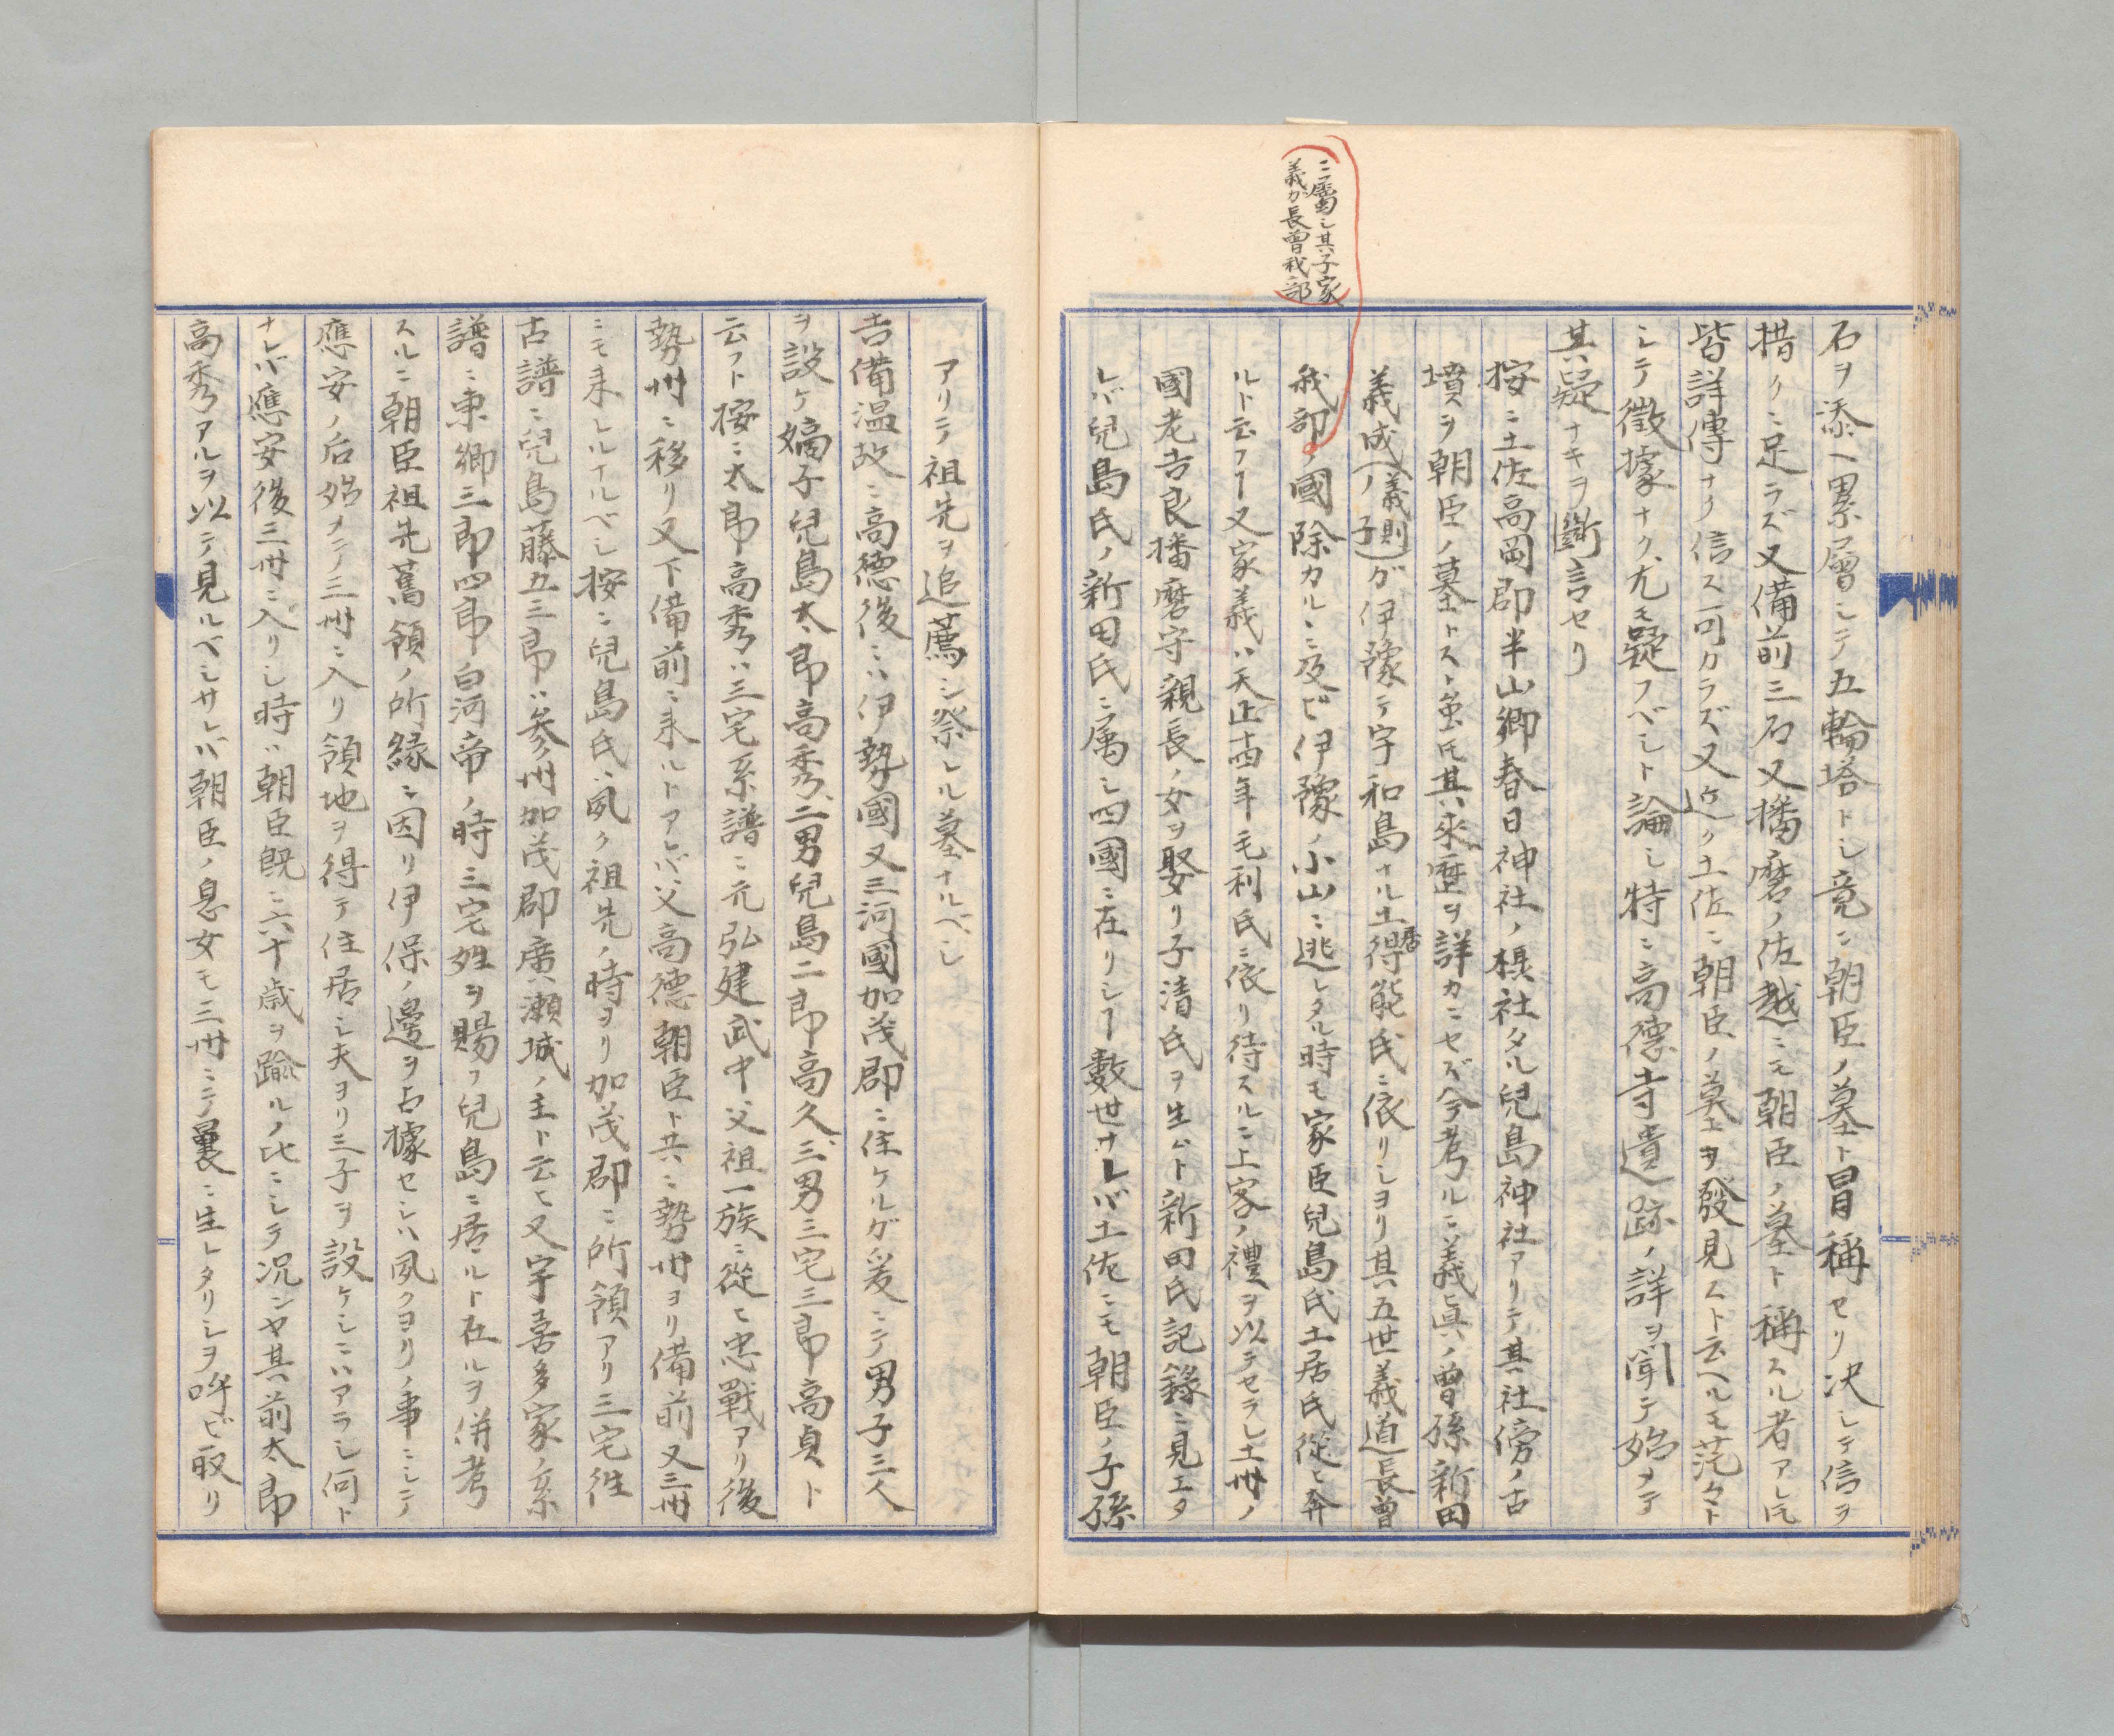 石ヲ添ヘ累層シテ五輪塔トシ竟ニ朝臣ノ墓ト冒稱セリ决シテ信ヲ
措クニ足ラズ又備前三石又播磨ノ佐越ニモ朝臣ノ墓ト稱スル者アレ𪜈
皆詳傳ナク信ス可カラズ又近ク土佐ニ朝臣ノ墓ヲ發見スト云ヘルモ茫々ト
シテ徴據ナク尤モ疑フベシト論シ特ニ高德寺遺跡ノ詳ヲ聞テ始メテ
其疑ナキヲ斷言セリ
按ニ土佐高岡郡半山郷春日神社ノ攝社タル兒島神社アリテ其社傍ノ古
墳ヲ朝臣ノ墓トスト虽𪜈其來歷ヲ詳カニセズ今考ルニ義眞ノ曽孫新田
義成(義則ノ子)ガ伊豫テ宇和島ナル土居得能氏ニ依リシヨリ其五世義道長曽
ニ屬シ其子家
義ガ長曽我部
我部ノ國除カルヽニ及ビ伊豫ノ小山ニ逃レタル時モ家臣兒島氏土居氏從ヒ奔
ルト云フヿ又家義ハ天正十四年毛利氏ニ依リ待スルニ上客ノ禮ヲ以テセラレ土州ノ
國老吉良播磨守親長ノ女ヲ娶リ子清氏ヲ生ムト新田氏記錄ニ見エタ
レバ兒島氏ノ新田氏ニ属シ四國ニ在リシヿ數世ナレバ土佐ニモ朝臣ノ子孫
アリテ祖先ヲ追薦シ祭レル墓ナルベシ
吉備温故ニ高德後ニハ伊勢國又三河國加茂郡ニ住ケルガ爰ニテ男子三人
ヲ設ケ嫡子兒島太郎高秀、二男兒島二郎高久、三男三宅三郎高貞ト
云フト按ニ太郎高秀ハ三宅系譜ニ元弘建武中父祖一族ニ從ヒ忠戰アリ後
勢州ニ移リ又下備前ニ来ルトアレバ父高德朝臣ト共ニ勢州ヨリ備前又三州
ニモ来レルナルベシ按ニ兒島氏ハ夙ク祖先ノ時ヨリ加茂郡ニ所領アリ三宅徃
古譜ニ兒島藤五三郎ハ参州加茂郡廣瀬城ノ主ト云ヒ又宇喜多家ノ系
譜ニ東郷三郎四郎白河帝ノ時三宅姓ヲ賜フ兒島ニ居ルト在ルヲ併考
スルニ朝臣祖先舊領ノ所縁ニ因リ伊保ノ邊ヲ占據セシハ夙クヨリノ事ニシテ
應安ノ后始メテノ三州ニ入リ領地ヲ得テ住居シ夫ヨリ三子ヲ設ケシニハアラシ何ト
ナレバ應安後三州ニ入リシ時ハ朝臣旣ニ六十歳ヲ踰ルノ比ニシテ况ンヤ其前太郎
高秀アルヲ以テ見ルベシサレバ朝臣ノ息女モ三州ニテ曩ニ生レタリシヲ呼ビ取リ